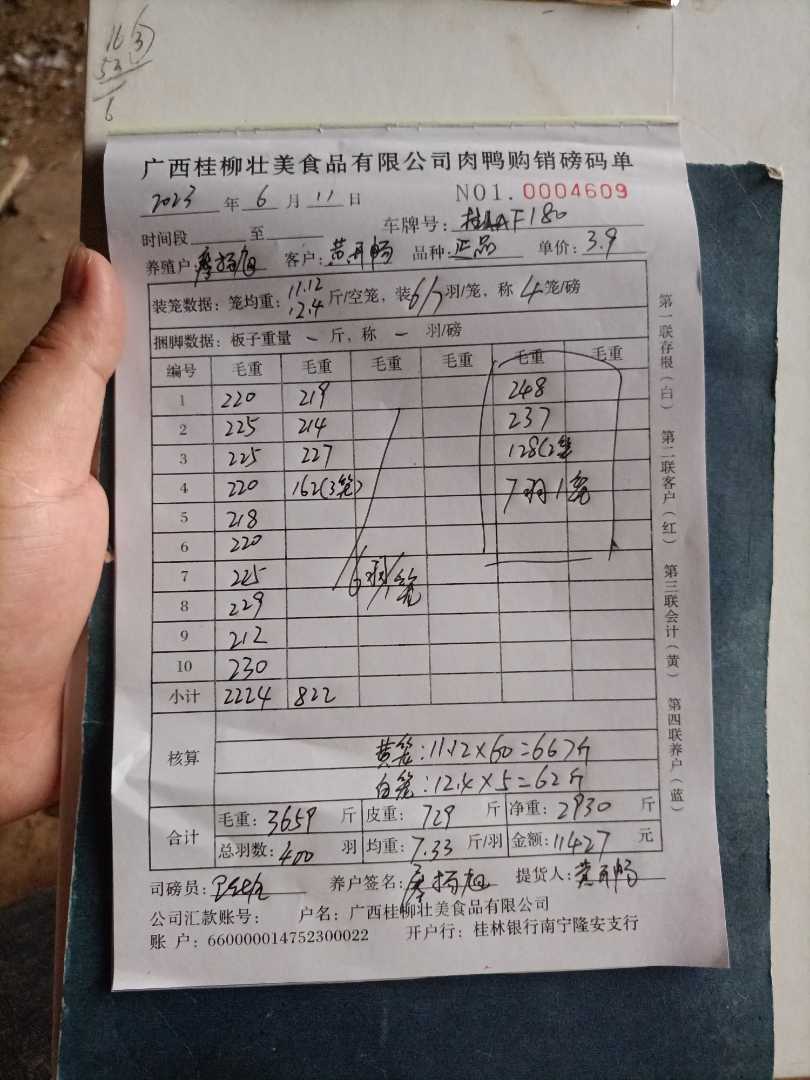 163
53
6
广西桂柳壮美食品有限公司肉鸭购销磅码单
2023 年 6 月 11 日 NO1. 0004609
时间段 至 车牌号: F180
养殖户:廖扬旭 客户:黄开畅 品种:正品 单价:3.9
装笼数据: 笼均重: 11.12 12.4 斤/空笼, 装 6/7 羽/笼, 称 4 笼/磅
捆脚数据: 板子重量 — 斤, 称 — 羽/磅
编号 毛重 毛重 毛重 毛重 毛重 毛重
1 220 219 248
2 225 214 237
3 225 227 128(2笼
4 220 162(3笼) 7羽1笼
5 218
6 220
7 225 6羽/笼
8 229
9 212
10 230
小计 2224 822
核算
黄笼:11.12×60=667斤
白笼:12.4×5=62斤
合计 毛重: 3659 斤 皮重: 729 斤 净重: 2930 斤
总羽数: 400 羽 均重: 7.33 斤/羽 金额: 11427 元
司磅员: 养户签名: 廖扬旭 提货人: 黄开畅
公司汇款账号: 户名: 广西桂柳壮美食品有限公司
账 户: 660000014752300022 开户行: 桂林银行南宁隆安支行
第一联存根(白) 第二联客户(红) 第三联会计(黄) 第四联养户(蓝)